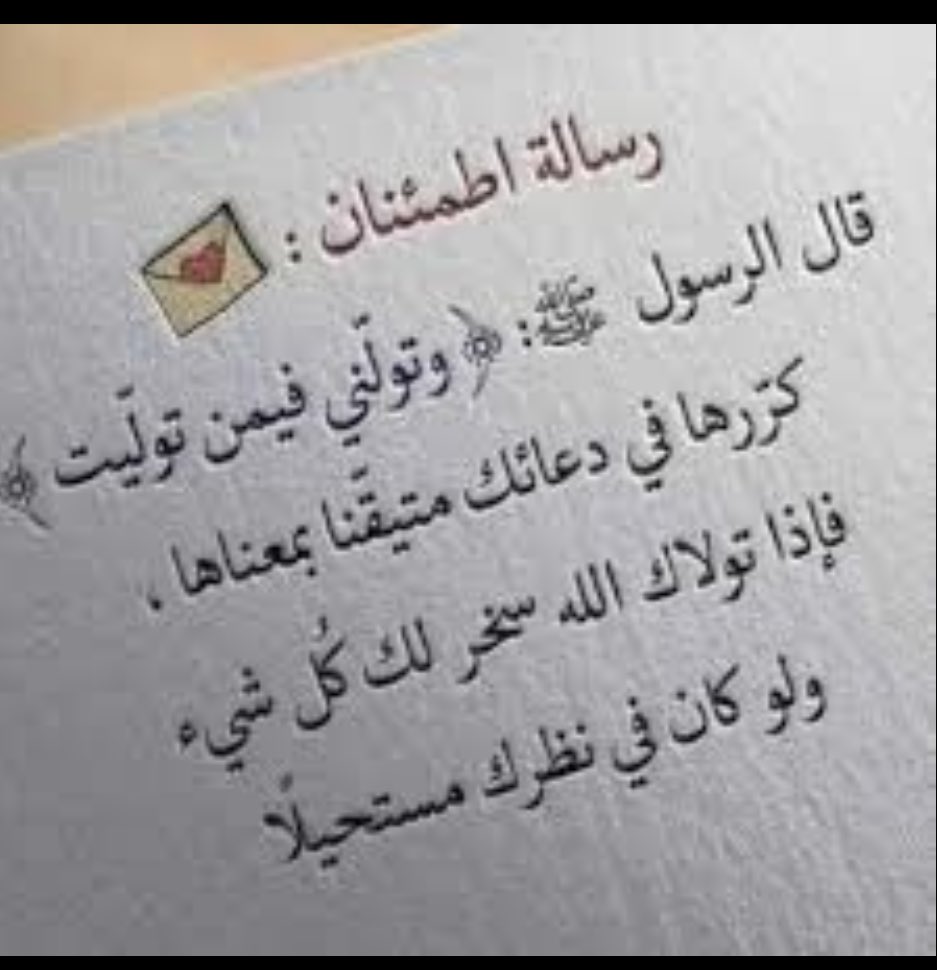 رسالة اطمئنان :
قال الرسول ﷺ: ﴿ وتولّني فيمن تولّيت ﴾
كرّرها في دعائك متيقّنا بمعناها ،
فإذا تولاك الله سخر لك كُل شيء
ولو كان في نظرك مستحيلًا